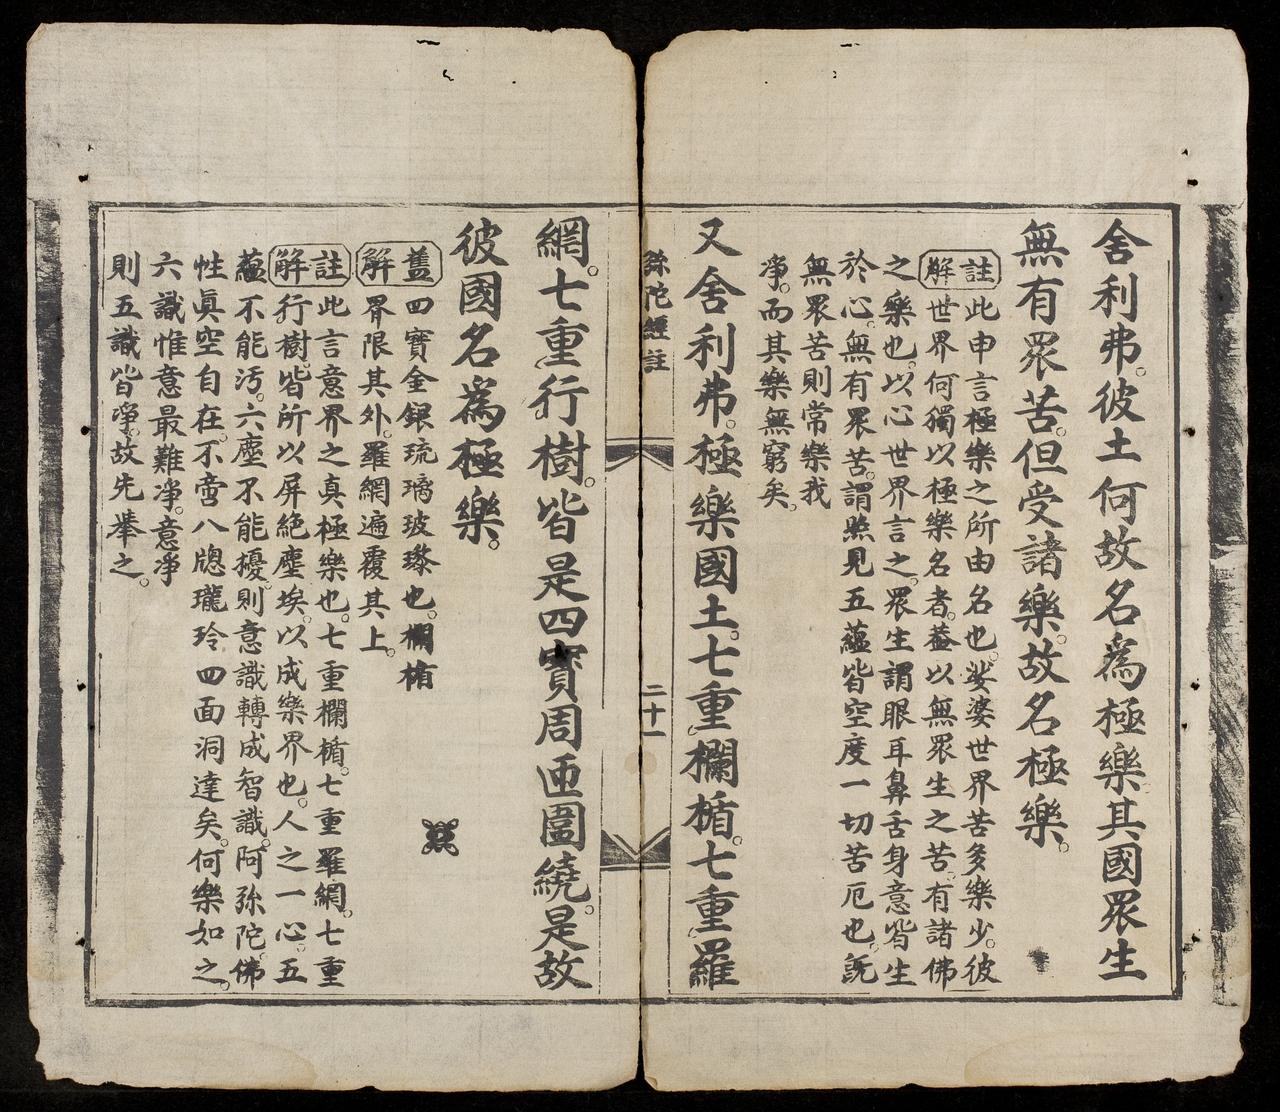 舍利弗。彼土何故名爲極樂。其國眾生
無有眾苦。但受諸樂。故名極樂。
註解 此申言極樂之所由名也。娑婆世界苦多樂少。彼
世界何獨以極樂名者。蓋以無眾生之苦。有諸佛
之樂也。以心世界言之。眾生謂眼耳鼻舌身意皆生
於心。無有眾苦。謂照見五蘊皆空度一切苦厄也。既
無眾苦則常樂我
淨。而其樂無窮矣。
又舍利弗。極樂國土。七重欄楯。七重羅
弥陀經註
二十一
網。七重行樹。皆是四寶周匝圍繞。是故
彼國名爲極樂。
舊解 四寶金銀琉璃玻瓈也。欄楯
界限其外。羅網遍覆其上。
註解 此言意界之真極樂也。七重欄楯。七重羅網。七重
行樹。皆所以屏絕塵埃。以成樂界也。人之一心。五
蘊不能汚。六塵不能擾。則意識轉成智識。阿弥陀佛
性眞空自在。不啻八牕瓏玲四面洞達矣。何樂如之。
六識惟意最難淨。意淨
則五識皆淨。故先舉之。